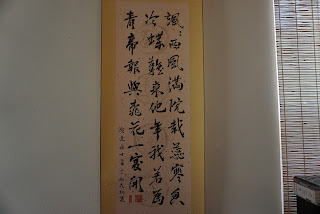 颯〻西風滿院栽蕊寒香
冷蝶難來他年我若為
青帝報與桃花一處開